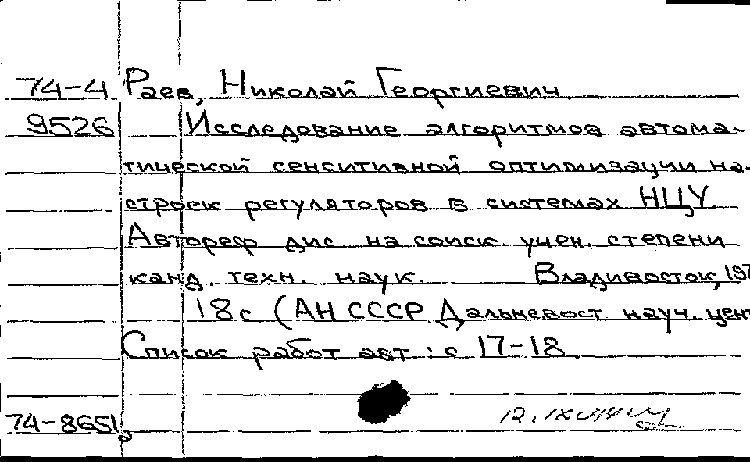 74-4 Раев, Николай Георгиевич
9526 Исследование алгоритмов автома-
тической сенситивной оптимизации на-
строек регуляторов в системах НЦУ.
Автореф дис на соиск. учен. степени
канд. техн. наук. Владивосток, 197
18с (АН СССР Дальневост науч. цен
Список работ авт.: с 17-18
74-8651